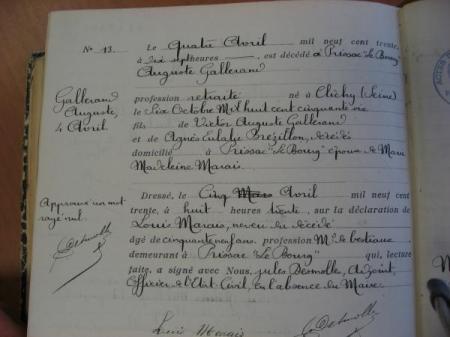 N° 13.
Le Quatre Avril mil neuf cent trente,
à dix sept heures, est décédé à Prissac "Le Bourg"
Auguste Gallerand
Gallerand
Auguste,
4 Avril
profession retraité né à Clichy (Seine)
le Six Octobre Mil huit cent cinquante
fils de Victor Auguste Gallerand
et de Agnès Eulalie Brézillon, décédé
domicilié à Prissac "Le Bourg" époux de Marie
Madeleine Marais.
Dressé, le Cinq Mars Avril mil neuf cent
trente, à huit heures trente, sur la déclaration de
Louis Marais, neveu du décédé
âgé de cinquante neuf ans, profession Md de bestiaux
demeurant à Prissac "Le Bourg" qui, lecture
faite, a signé avec Nous, Jules Desmolle, Adjoint,
Officier de l'Etat Civil, en l'absence du Maire.
Approuvé un mot
rayé nul.
Desmolle
Louis Marais
Desmolle